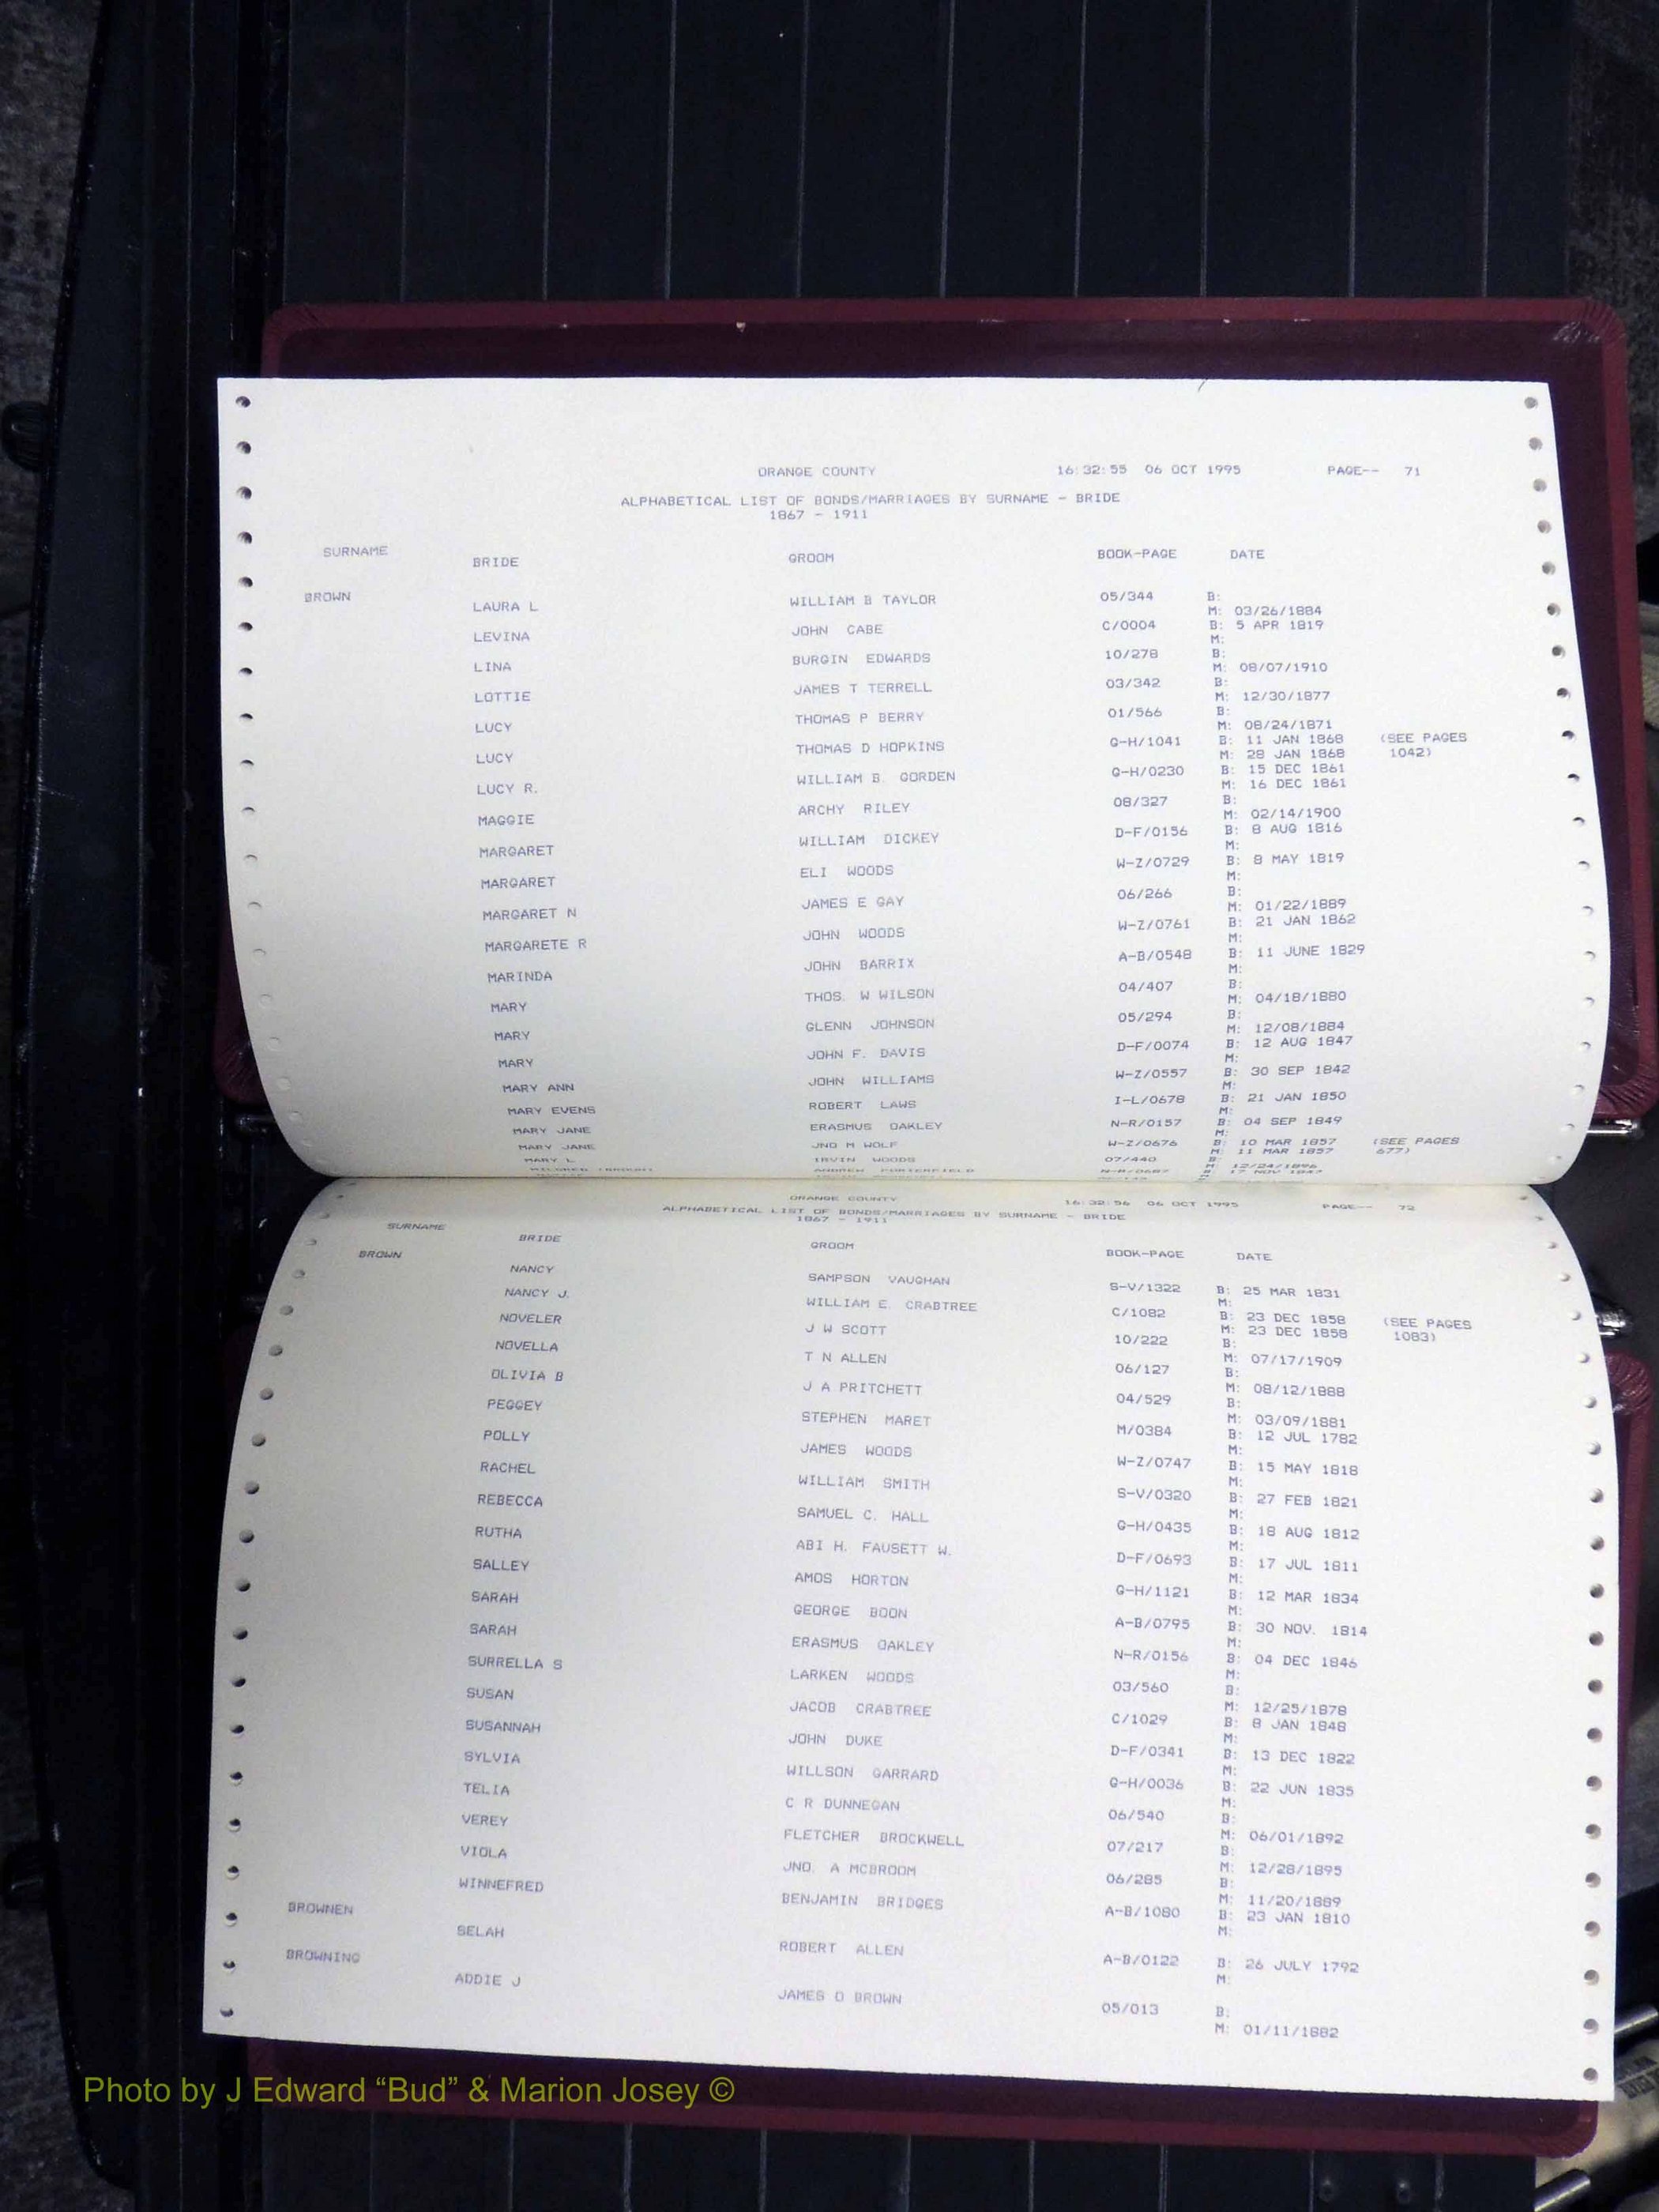 ORANGE COUNTY 16:32:55 06 OCT 1995 PAGE-- 71
ALPHABETICAL LIST OF BONDS/MARRIAGES BY SURNAME - BRIDE
1867 - 1911
SURNAME BRIDE GROOM BOOK-PAGE DATE
BROWN
LAURA L WILLIAM B TAYLOR 05/344 B:
M: 03/26/1884
LEVINA JOHN CABE C/0004 B: 5 APR 1819
M:
LINA BURGIN EDWARDS 10/278 B:
M: 08/07/1910
LOTTIE JAMES T TERRELL 03/342 B:
M: 12/30/1877
LUCY THOMAS P BERRY 01/566 B:
M: 08/24/1871
LUCY THOMAS D HOPKINS G-H/1041 B: 11 JAN 1868 (SEE PAGES
M: 28 JAN 1868 1042)
LUCY R. WILLIAM B. GORDEN G-H/0230 B: 15 DEC 1861
M: 16 DEC 1861
MAGGIE ARCHY RILEY 08/327 B:
M: 02/14/1900
MARGARET WILLIAM DICKEY D-F/0156 B: 8 AUG 1816
M:
MARGARET ELI WOODS W-Z/0729 B: 8 MAY 1819
M:
MARGARET N JAMES E GAY 06/266 B:
M: 01/22/1889
MARGARETE R JOHN WOODS W-Z/0761 B: 21 JAN 1862
M:
MARINDA JOHN BARRIX A-B/0548 B: 11 JUNE 1829
M:
MARY THOS. W WILSON 04/407 B:
M: 04/18/1880
MARY GLENN JOHNSON 05/294 B:
M: 12/08/1884
MARY JOHN F. DAVIS D-F/0074 B: 12 AUG 1847
M:
MARY ANN JOHN WILLIAMS W-Z/0557 B: 30 SEP 1842
M:
MARY EVENS ROBERT LAWS I-L/0678 B: 21 JAN 1850
M:
MARY JANE ERASMUS OAKLEY N-R/0157 B: 04 SEP 1849
M:
MARY JANE JNO M WOLF W-Z/0676 B: 10 MAR 1857 (SEE PAGES
M: 11 MAR 1857 677)
MARY L IRVIN WOODS 07/440 B:
M: 12/24/1896
ANDREW PORTERFIELD
ORANGE COUNTY 16:32:56 06 OCT 1995 PAGE-- 72
ALPHABETICAL LIST OF BONDS/MARRIAGES BY SURNAME - BRIDE
1867 - 1911
SURNAME BRIDE GROOM BOOK-PAGE DATE
BROWN
NANCY SAMPSON VAUGHAN S-V/1322 B: 25 MAR 1831
M:
NANCY J. WILLIAM E. CRABTREE C/1082 B: 23 DEC 1858 (SEE PAGES
M: 23 DEC 1858 1083)
NOVELER J W SCOTT 10/222 B:
M: 07/17/1909
NOVELLA T N ALLEN 06/127 B:
M: 08/12/1888
OLIVIA B J A PRITCHETT 04/529 B:
M: 03/09/1881
PEGGEY STEPHEN MARET M/0384 B: 12 JUL 1782
M:
POLLY JAMES WOODS W-Z/0747 B: 15 MAY 1818
M:
RACHEL WILLIAM SMITH S-V/0320 B: 27 FEB 1821
M:
REBECCA SAMUEL C. HALL G-H/0435 B: 18 AUG 1812
M:
RUTHA ABI H. FAUSETT W. D-F/0693 B: 17 JUL 1811
M:
SALLEY AMOS HORTON G-H/1121 B: 12 MAR 1834
M:
SARAH GEORGE BOON A-B/0795 B: 30 NOV. 1814
M:
SARAH ERASMUS OAKLEY N-R/0156 B: 04 DEC 1846
M:
SURRELLA S LARKEN WOODS 03/560 B:
M: 12/25/1878
SUSAN JACOB CRABTREE C/1029 B: 8 JAN 1848
M:
SUSANNAH JOHN DUKE D-F/0341 B: 13 DEC 1822
M:
SYLVIA WILLSON GARRARD G-H/0036 B: 22 JUN 1835
M:
TELIA C R DUNNEGAN 06/540 B:
M: 06/01/1892
VEREY FLETCHER BROCKWELL 07/217 B:
M: 12/28/1895
VIOLA JNO. A MCBROOM 06/285 B:
M: 11/20/1889
WINNEFRED BENJAMIN BRIDGES A-B/1080 B: 23 JAN 1810
M:
BROWNEN
SELAH ROBERT ALLEN A-B/0122 B: 26 JULY 1792
M:
BROWNING
ADDIE J JAMES O BROWN 05/013 B:
M: 01/11/1882
Photo by J Edward “Bud” & Marion Josey ©